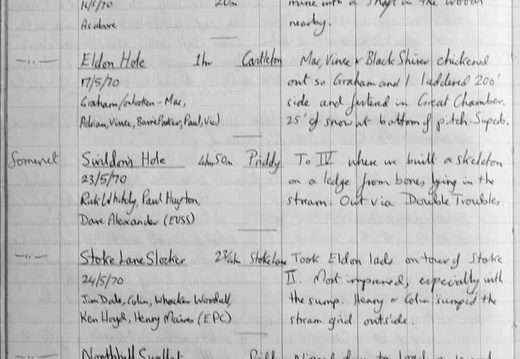 14/5/70 20m mine with a shaft in the woods
As above nearby.
-"- Eldon Hole 1hr Castleton Mac, Vince & Black Shiner chickened
17/5/70 out so Graham and I laddered 200'
Graham / on taken - Mac, side and festered in Great Chamber.
Adrian, Vince, Barrie Parker, Paul, Viv) 25' of snow at bottom of pitch. Superb.
Somerset Swildon's Hole 4hr 50m Priddy To IV where we built a skeleton
23/5/70 on a ledge from bones lying in the
Rick Whitely, Paul Huyton, stream. Out via Double Troubles.
Dave Alexander (EVSS)
-"- Stoke Lane Slocker 2¾hr Stoke Lane Took Eldon lads on tour of Stoke
24/5/70 II. Most impressed, especially with
Jim Dale, Colin, Whacker Woodall, the sump. Henry & Colin sumped the
Ken Lloyd, Henry Mares (EPC) stream grid outside.
Northhill Swallet